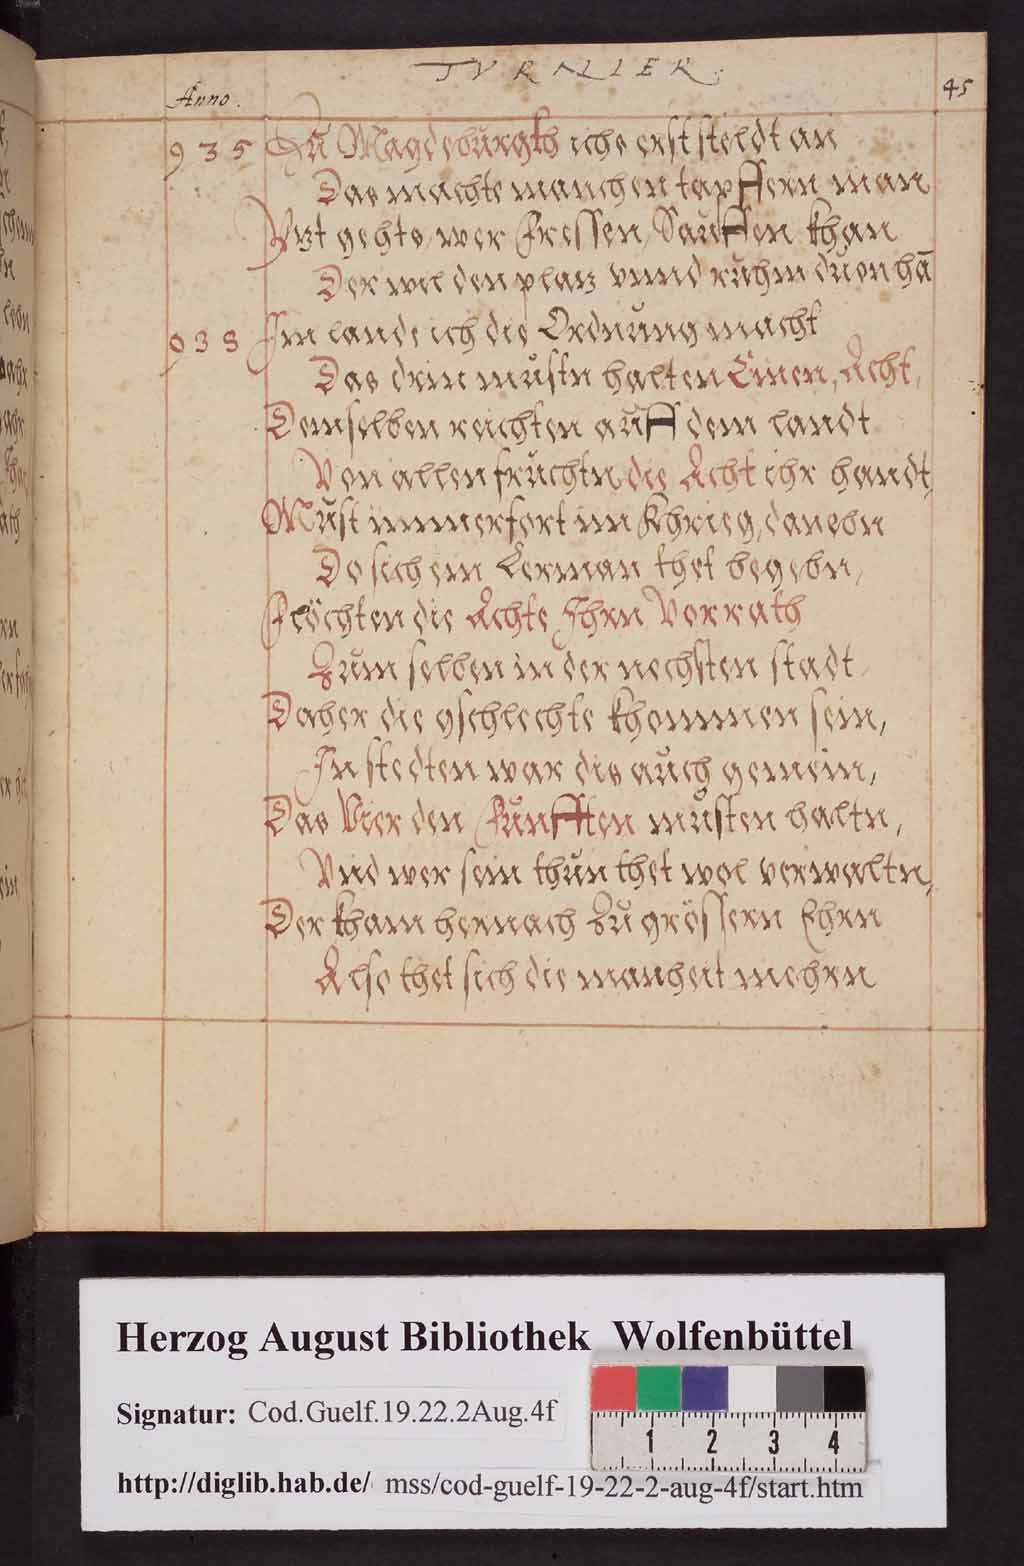 TVRNIER.
45
Anno.
935 Zu Magdeburgkh ichs erst steldt an
Das machte manchen tapffern man
Jtzt gehts, wer Fressen, Sauffen khan
Der wil den platz vnnd ruhm duon hā
938 Im lande ich die Ordnung macht
Das drin mustn halten Einen, Acht,
Demselben reichten auff dem landt
Von allen fruchtn die Acht ihr handt,
Must immerfort im Khrieg, danebn
Do sich ein Lerman thet begebn,
Flöchten die Achte Ihrn Vorrath
Zum selben in der nechsten stadt,
Daher die gschlechte khommen sein,
In stedten war dis auch gemein,
Das Vier den Funfften musten haltn,
Vnd wer sein thun thet wol verwaltn,
Der kham hernach zu grössern Ehrn
Also thet sich die manheit mehrn
Herzog August Bibliothek Wolfenbüttel
Signatur: Cod.Guelf.19.22.2Aug.4f
1 2 3 4
http://diglib.hab.de/ mss/cod-guelf-19-22-2-aug-4f/start.htm